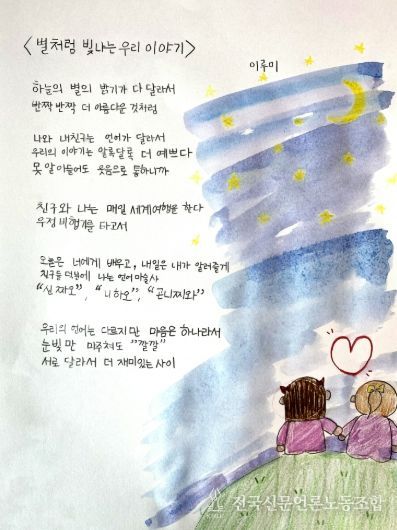 <별처럼 빛나는 우리 이야기>
이루미
하늘의 별의 밝기가 다 달라서
반짝 반짝 더 아름다운 것처럼
나와 내친구는 언어가 달라서
우리의 이야기는 알록달록 더 예쁘다
못 알아들어도 웃음으로 통하니까
친구와 나는 매일 세계여행을 한다
우정 비행기를 타고서
오늘은 너에게 배우고, 내일은 내가 알려줄게
친구들 덕분에 나는 언어마술사
"신짜오", "니하오", "곤니찌와"
우리의 언어는 다르지만 마음은 하나라서
눈빛만 마주쳐도 "깔깔"
서로 달라서 더 재미있는 사이
전국신문언론노동조합